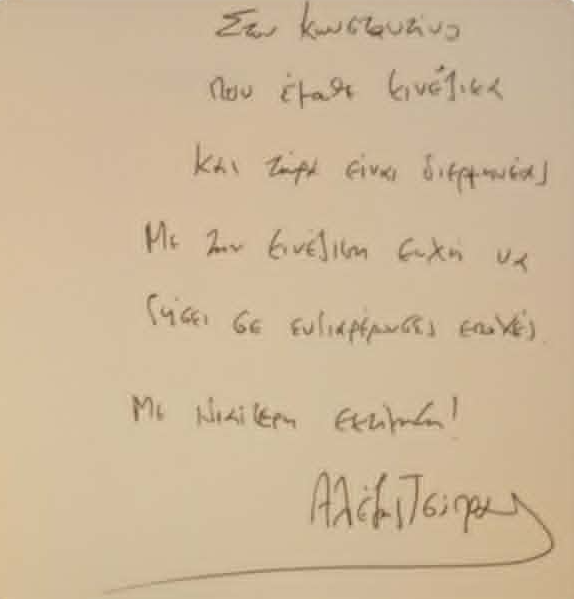 Στον Κωνσταντίνο
που έμαθε κινέζικα
και τώρα είναι διερμηνέας
Με την κινέζικη ευχή να
ζήσει σε ενδιαφέρουσες εποχές.
Με ιδιαίτερη εκτίμηση!
Αλέξης Τσίπρας